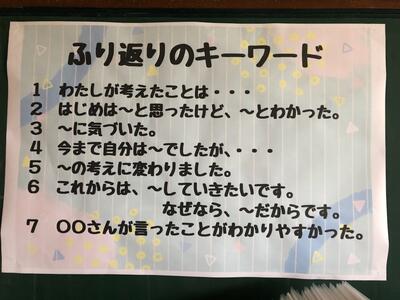 ふり返りのキーワード
1 わたしが考えたことは・・・
2 はじめは～と思ったけど、～とわかった。
3 ～に気づいた。
4 今まで自分は～でしたが、・・・
5 ～の考えに変わりました。
6 これからは、～していきたいです。
なぜなら、～だからです。
7 〇〇さんが言ったことがわかりやすかった。